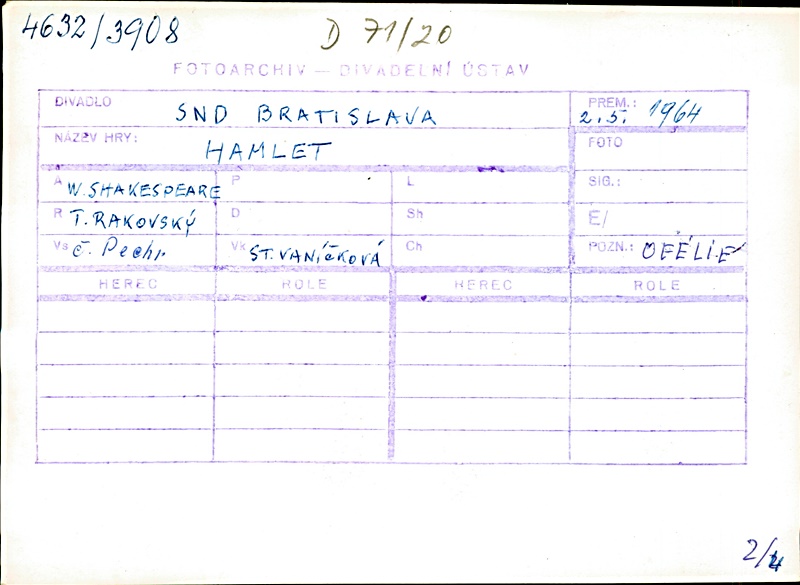 4632/3908 D 71/20
FOTOARCHIV — DIVADELNÍ ÚSTAV
DIVADLO SND BRATISLAVA PREM.: 2.5. 1964
NÁZEV HRY: HAMLET FOTO
A W. SHAKESPEARE P L SIG.:
R T. RAKOVSKÝ D Sh E/
Vs Č. Pechr. Vk ST. VANÍČKOVÁ Ch POZN.: OFÉLIE
HEREC ROLE HEREC ROLE
2/4